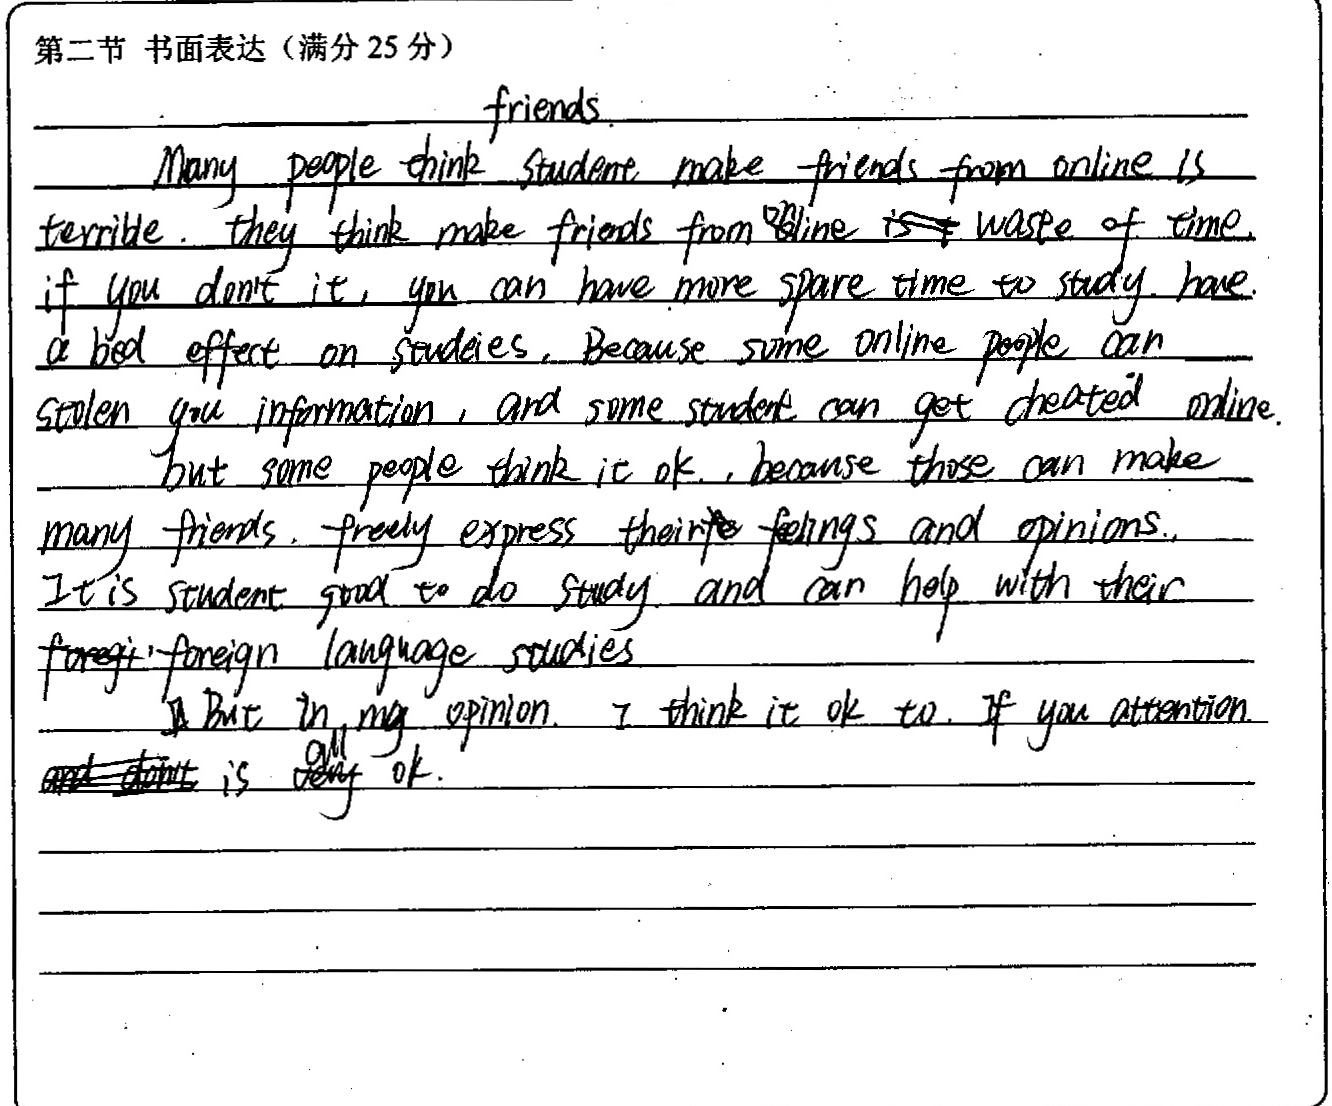 第二节 书面表达（满分 25 分）
friends.
Many people think student make friends from online is
terrible. they think make friends from online waste of time.
if you don't it, you can have more spare time to study. have
a bed effect on studeies. Because some online people can
stolen you information, and some student can get cheated online.
but some people think it ok., because those can make
many friends. freely express their feelings and opinions.
It is student good to do study and can help with their
foreign language studies
But in my opinion. I think it ok to. If you attention
is all ok.